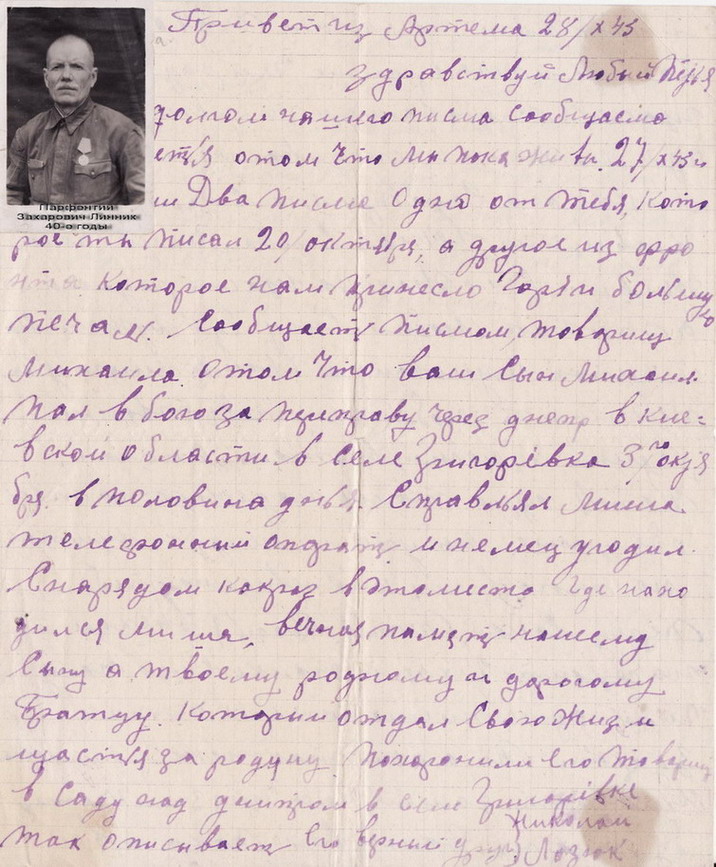 Привет из Артема 28/X 43
Здравствуй Любый Петя
долгом нашего писма сообщаемо
отом что мы пока живы. 27/X 43 г
Два писма Одно от тебя, Кото
рое ты писал 20/октября, а другое из фро
нта Которое нам принесло Горе и большую
печаль. Сообщает писмом, товарищ
Михаила. Отом Что ваш Сын Михаил
пал в бою за переправу через днепр в Кие-
вской области в Селе Григорівка 3го октя
бря в половина дня. Справлял Миша
телефонный апарат и немец угодил
Снарядом как раз в Этоместо Где нахо
дился Миша, вечная память нашему
Сыну а твоему родному и дорогому
Братцу. Который отдал Свою Жизнь
щастья за родину похоронили Его товарищ
в Саду над днепром в селе Григорівке
так описывает Его верный друг Николай
Лозюк
Парфентий
Захарович Линник
40-е годы